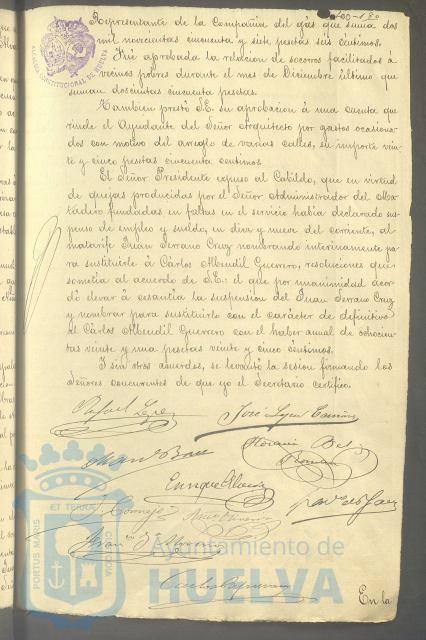 Representante de la Compañia del gas que suma dos
mil novecientas cincuenta y siete pesetas seis céntimos.
Fué aprobada la relacion de socorros facilitados a
vecinos pobres durante el mes de Diciembre último que
suman doscientas cincuenta pesetas.
Tambien prestó S.E. su aprobacion á una cuenta que
rinde el Ayudante del Señor Arquitecto por gastos ocasiona-
dos con motivo del arreglo de varias calles, su importe vein-
te y cinco pesetas cincuenta centimos.
El Señor Presidente expuso al Cabildo, que en virtud
de quejas producidas por el Señor Administrador del Ma-
tadero fundadas en faltas en el servicio habia declarado sus-
penso de empleo y sueldo, en diez y nueve del corriente, al
matarife Juan Serrano Cruz nombrando interinamente pa-
ra sustituirle á Cárlos Abendil Guerrero, resoluciones que
sometia al acuerdo de S.E. el que por unanimidad acor-
dó elevar á cesantia la suspension del Juan Serrano Cruz
y nombrar para sustituirlo con el carácter de definitivo
al Cárlos Abendil Guerrero con el haber anual de ochocien-
tas veinte y una pesetas veinte y cinco céntimos.
Y sin otros acuerdos, se levantó la sesion firmando los
Señores concurrentes de que yo el Secretario certifico.
Rafael Lopez
José
Horacio Bel
Roman
Enrique
Cornejo
En la
PORTUS MARIS
ET TERRÆ
CUSTODIA
Ayuntamiento de
HUELVA